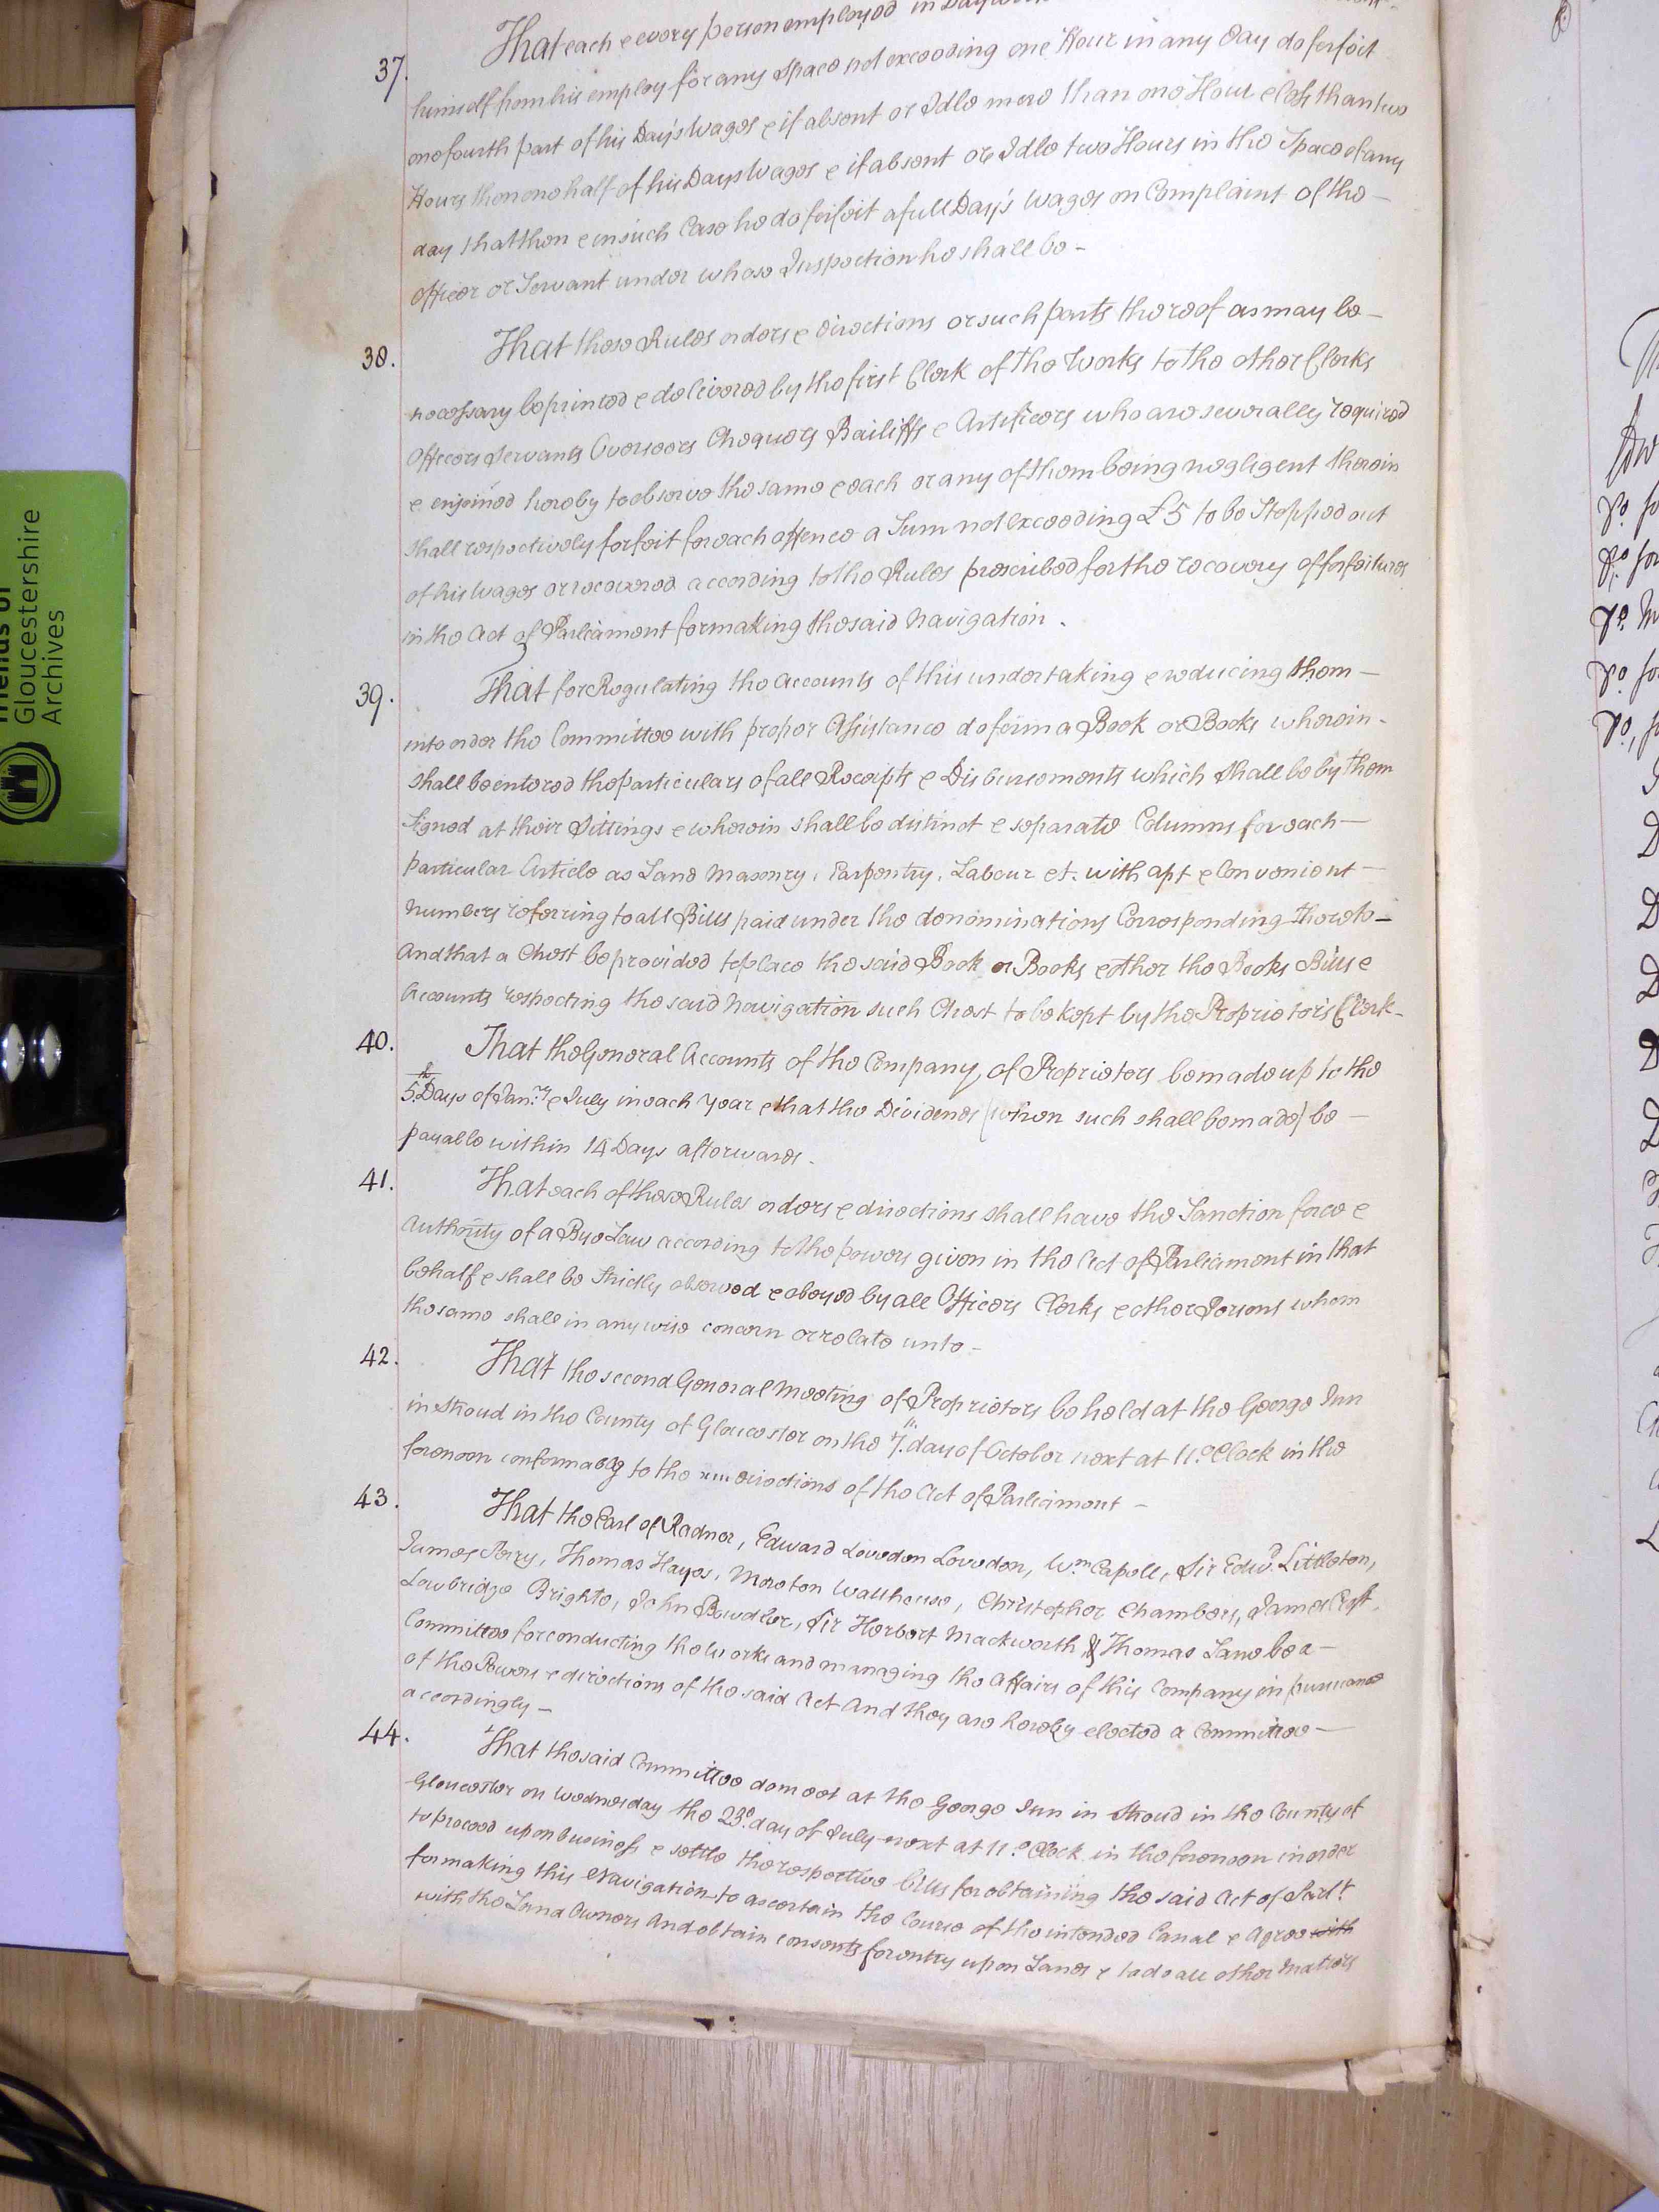 Friends of
Gloucestershire
Archives
37. That each & every person employed in
himself from his employ for any Space not exceeding one Hour in any Day do forfeit
one fourth part of his Day's Wages & if absent or Idle more than one Hour & less than two
Hours then one half of his Days Wages & if absent or Idle two Hours in the Space of any
day that then & in such Case he do forfeit a full Day's Wages on Complaint of the -
Officer or Servant under whose Inspection he shall be -
38. That these Rules orders & directions or such parts thereof as may be -
necessary be printed & delivered by the first Clerk of the Works to the other Clerks
Officers Servants Overseers Chequers Bailiffs & Artificers who are severally required
& enjoined hereby to observe the same & each or any of them being negligent therein
shall respectively forfeit for each offence a Sum not exceeding £5 to be Stopped out
of his Wages or recovered according to the Rules prescribed for the recovery of forfeitures
in the Act of Parliament for making the said Navigation .
39. That for Regulating the Accounts of this undertaking & reducing them -
into order the Committee with proper Assistance do form a Book or Books wherein -
shall be entered the particulars of all Receipts & Disbursements which shall be by them
signed at their Sittings & wherein shall be distinct & separate Columns for each -
particular Article as Land Masonry, Carpentry, Labour et. with apt & Convenient -
Numbers referring to all Bills paid under the denominations Corresponding thereto -
And that a Chest be provided to place the said Book or Books & other the Books Bills &
Accounts respecting the said Navigation such Chest to be kept by the Proprietors Clerk -
40. That the General Accounts of the Company of Proprietors be made up to the
5th Days of Janry & July in each Year & that the Dividends (when such shall be made) be -
payable within 14 Days afterwards .
41. That each of these Rules orders & directions shall have the Sanction force &
Authority of a Bye Law according to the powers given in the Act of Parliament in that
behalf & shall be strictly observed & obeyed by all Officers Clerks & other Persons whom
the same shall in any wise concern or relate unto -
42. That the second General Meeting of Proprietors be held at the George Inn
in Stroud in the County of Gloucester on the 7th day of October next at 11 oClock in the
forenoon conformably to the directions of the Act of Parliament -
43. That the Earl of Radnor, Edward Loveden Loveden, Wm Capell, Sir Edwd Littleton,
James Perry, Thomas Hayes, Moreton Wallhouse, Christopher Chambers, James Croft,
Lowbridge Brighte, John Bowdler, Sir Herbert Mackworth & Thomas Lane be a -
Committee for conducting the Works and managing the Affairs of this Company in pursuance
of the Powers & directions of the said Act And they are hereby elected a Committee -
accordingly -
44. That the said Committee do meet at the George Inn in Stroud in the County of
Gloucester on Wednesday the 23d day of July next at 11 oClock in the forenoon in order
to proceed upon business & settle the respective bills for obtaining the said Act of Parlt
for making this Navigation to ascertain the Course of the intended Canal & Agree with
with the Land Owners And obtain consents for entry upon Lands & to do all other Matters